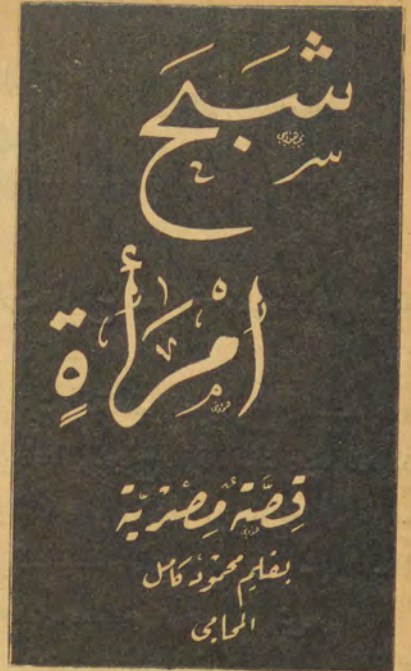 شَبَحُ
امْرَأَةٍ
قِصَّة مِصْرِيَّة
بقلم محمود كامل
المحامى